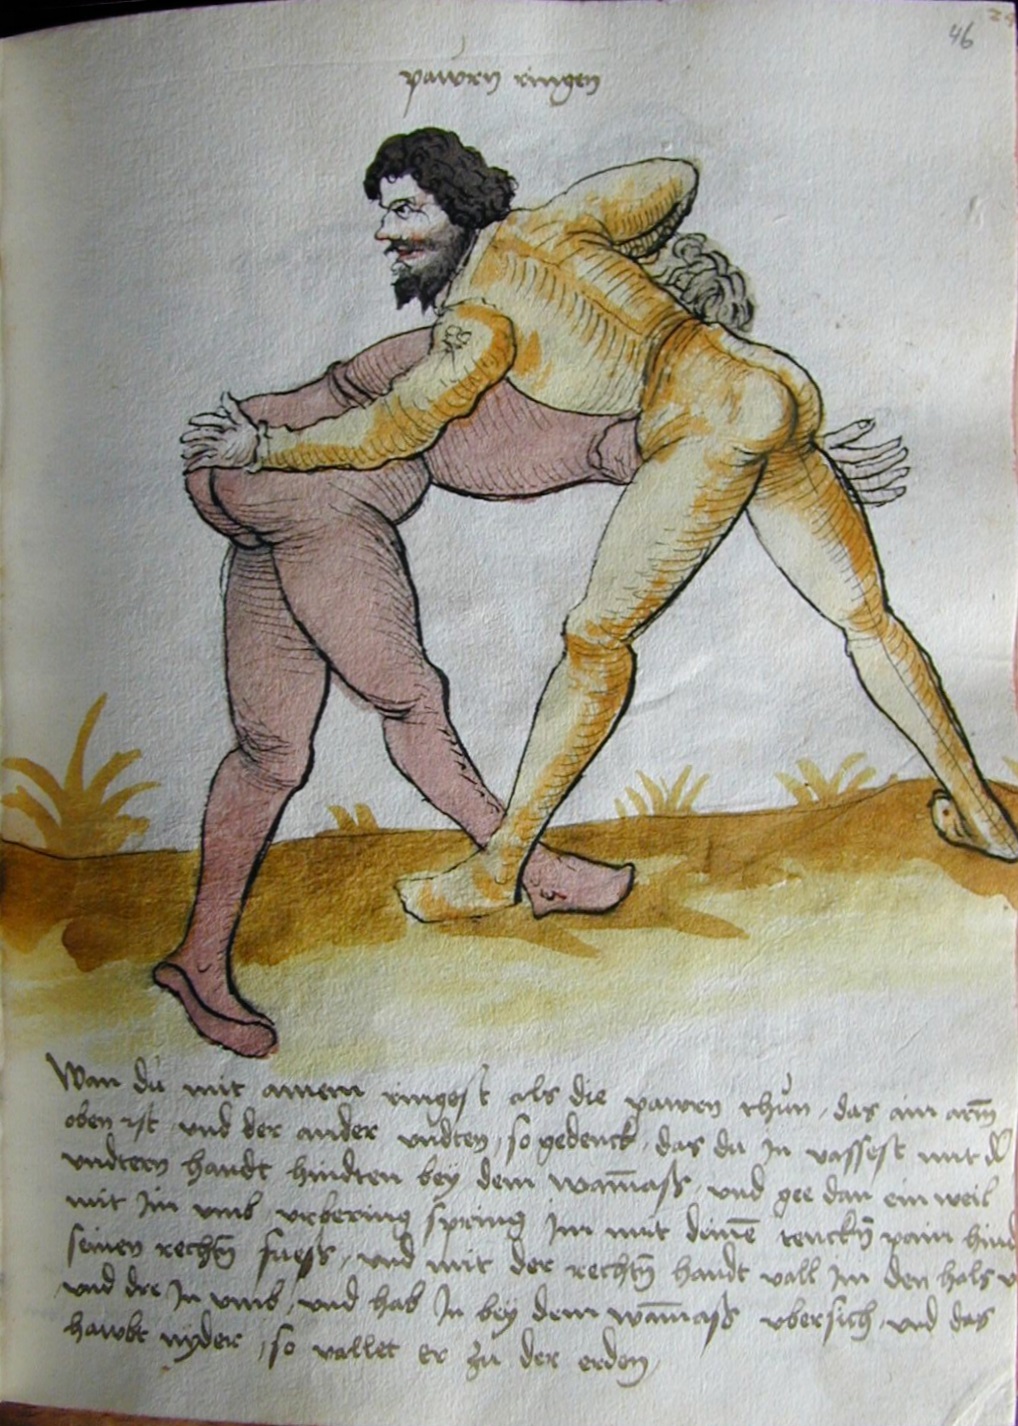 46
pawrn ringen
Wan du mit ainem ringest als die pawrn thun, das ain arm̄
oben ist und der ander undten, so gedenck, das du in vassest mit d̄
undtern handt hindten bey dem wam̄aß, und gee dan ein weil
mit Im umb, urbering spring Im mit deinē tenckn̄ pain hind
seinen rechtn̄ fueß, und mit der rechtn̄ handt vall im den hals
und dre In umb, und hab In bey dem wam̄aß ubersich, und das
hawbt nyder, so vallet er zu der erden,